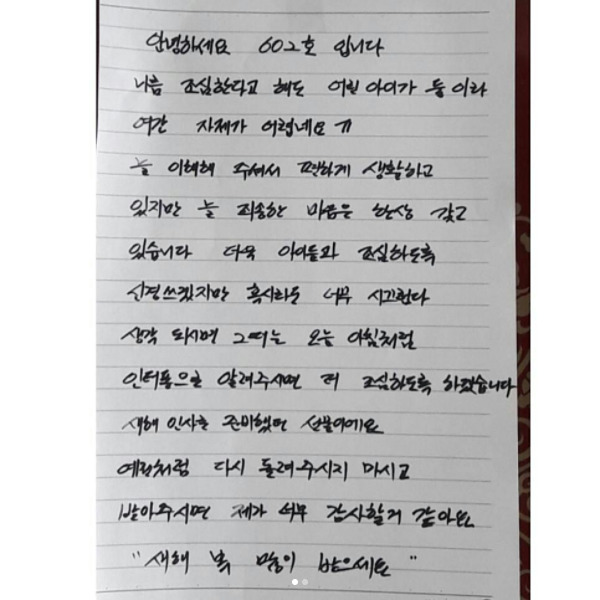 안녕하세요 602호 입니다
나름 조심한다고 해도 어린아이가 둘이라
여간 자제가 어렵네요 ㅠ
늘 이해해 주셔서 편하게 생활하고
있지만 늘 죄송한 마음은 한상 갖고
있습니다 더욱 아이들과 조심하도록
신경쓰겠지만 혹시라도 너무 시끄럽다
생각 되시면 그때는 오늘 아침처럼
인터폰으로 알려주시면 더 조심하도록 하겠습니다
새해 인사를 준비했던 선물이에요
예전처럼 다시 돌려주시지 마시고
받아주시면 제가 너무 감사할거 같아요
"새해 복 많이 받으세요"